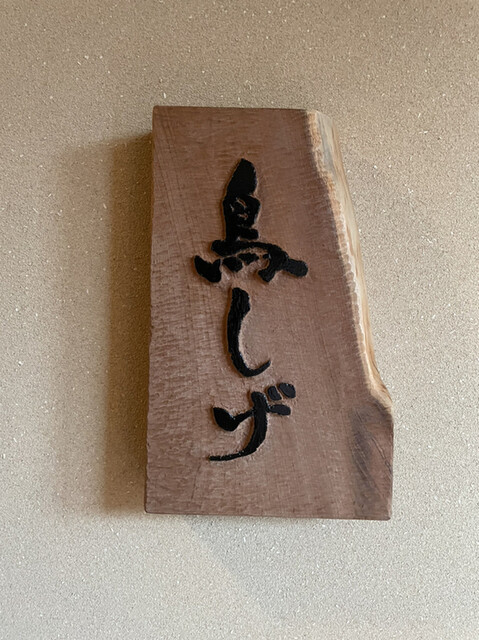 鳥しげ